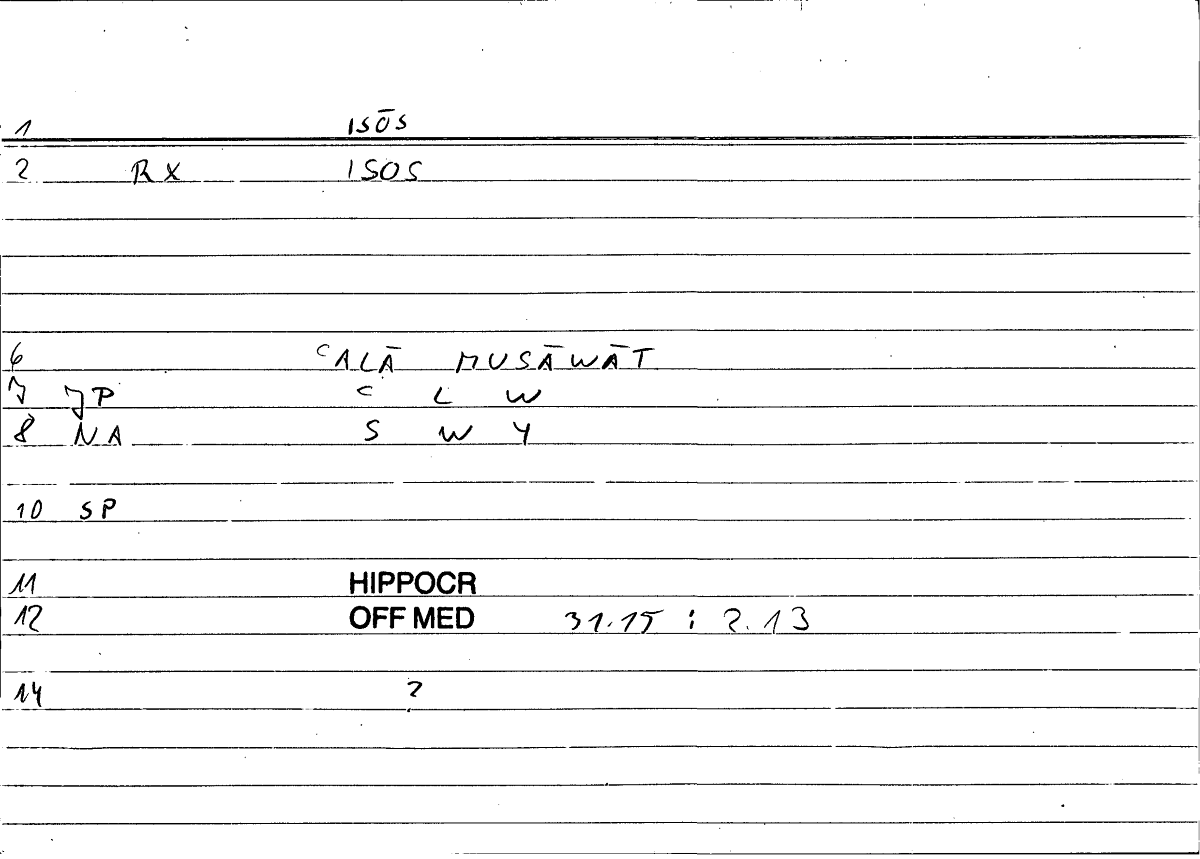 1 ISŌS
2 RX ISOS
6 ᶜALĀ MUSĀWĀT
7 JP ᶜ L W
8 NA S W Y
10 SP
11 HIPPOCR
12 OFF MED 31.15 : 2.13
14 ?